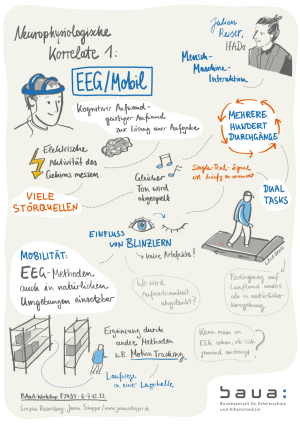 Neurophysiologische
Korrelate 1:
EEG/Mobil
Julian
Reiser,
IfADo
Mensch-
Maschine-
Interaktion
Kognitiver Aufwand -
geistiger Aufwand
zur Lösung einer Aufgabe
MEHRERE
HUNDERT
DURCHGÄNGE
Elektrische
Aktivität des
Gehirns messen
Gleicher
Ton wird
abgespielt
Single-Trial-Signal
ist häufig
VIELE
STÖRQUELLEN
DUAL
TASKS
EINFLUSS
VON BLINZLERN
keine Artefakte!
MOBILITÄT:
EEG-Methoden
auch in natürlichen
Umgebungen einsetzbar
Wo wird
Aufmerksamkeit
abgelenkt?
Bedingung auf
Laufband anders
als in natürlicher
Umgebung
Ergänzung durch
andere Methoden
z.B. Motion Tracking
Kann man im
EEG sehen, ob sich
jemand anstrengt?
Laufwege
in einer Lagerhalle
baua:
Bundesanstalt für Arbeitsschutz
und Arbeitsmedizin